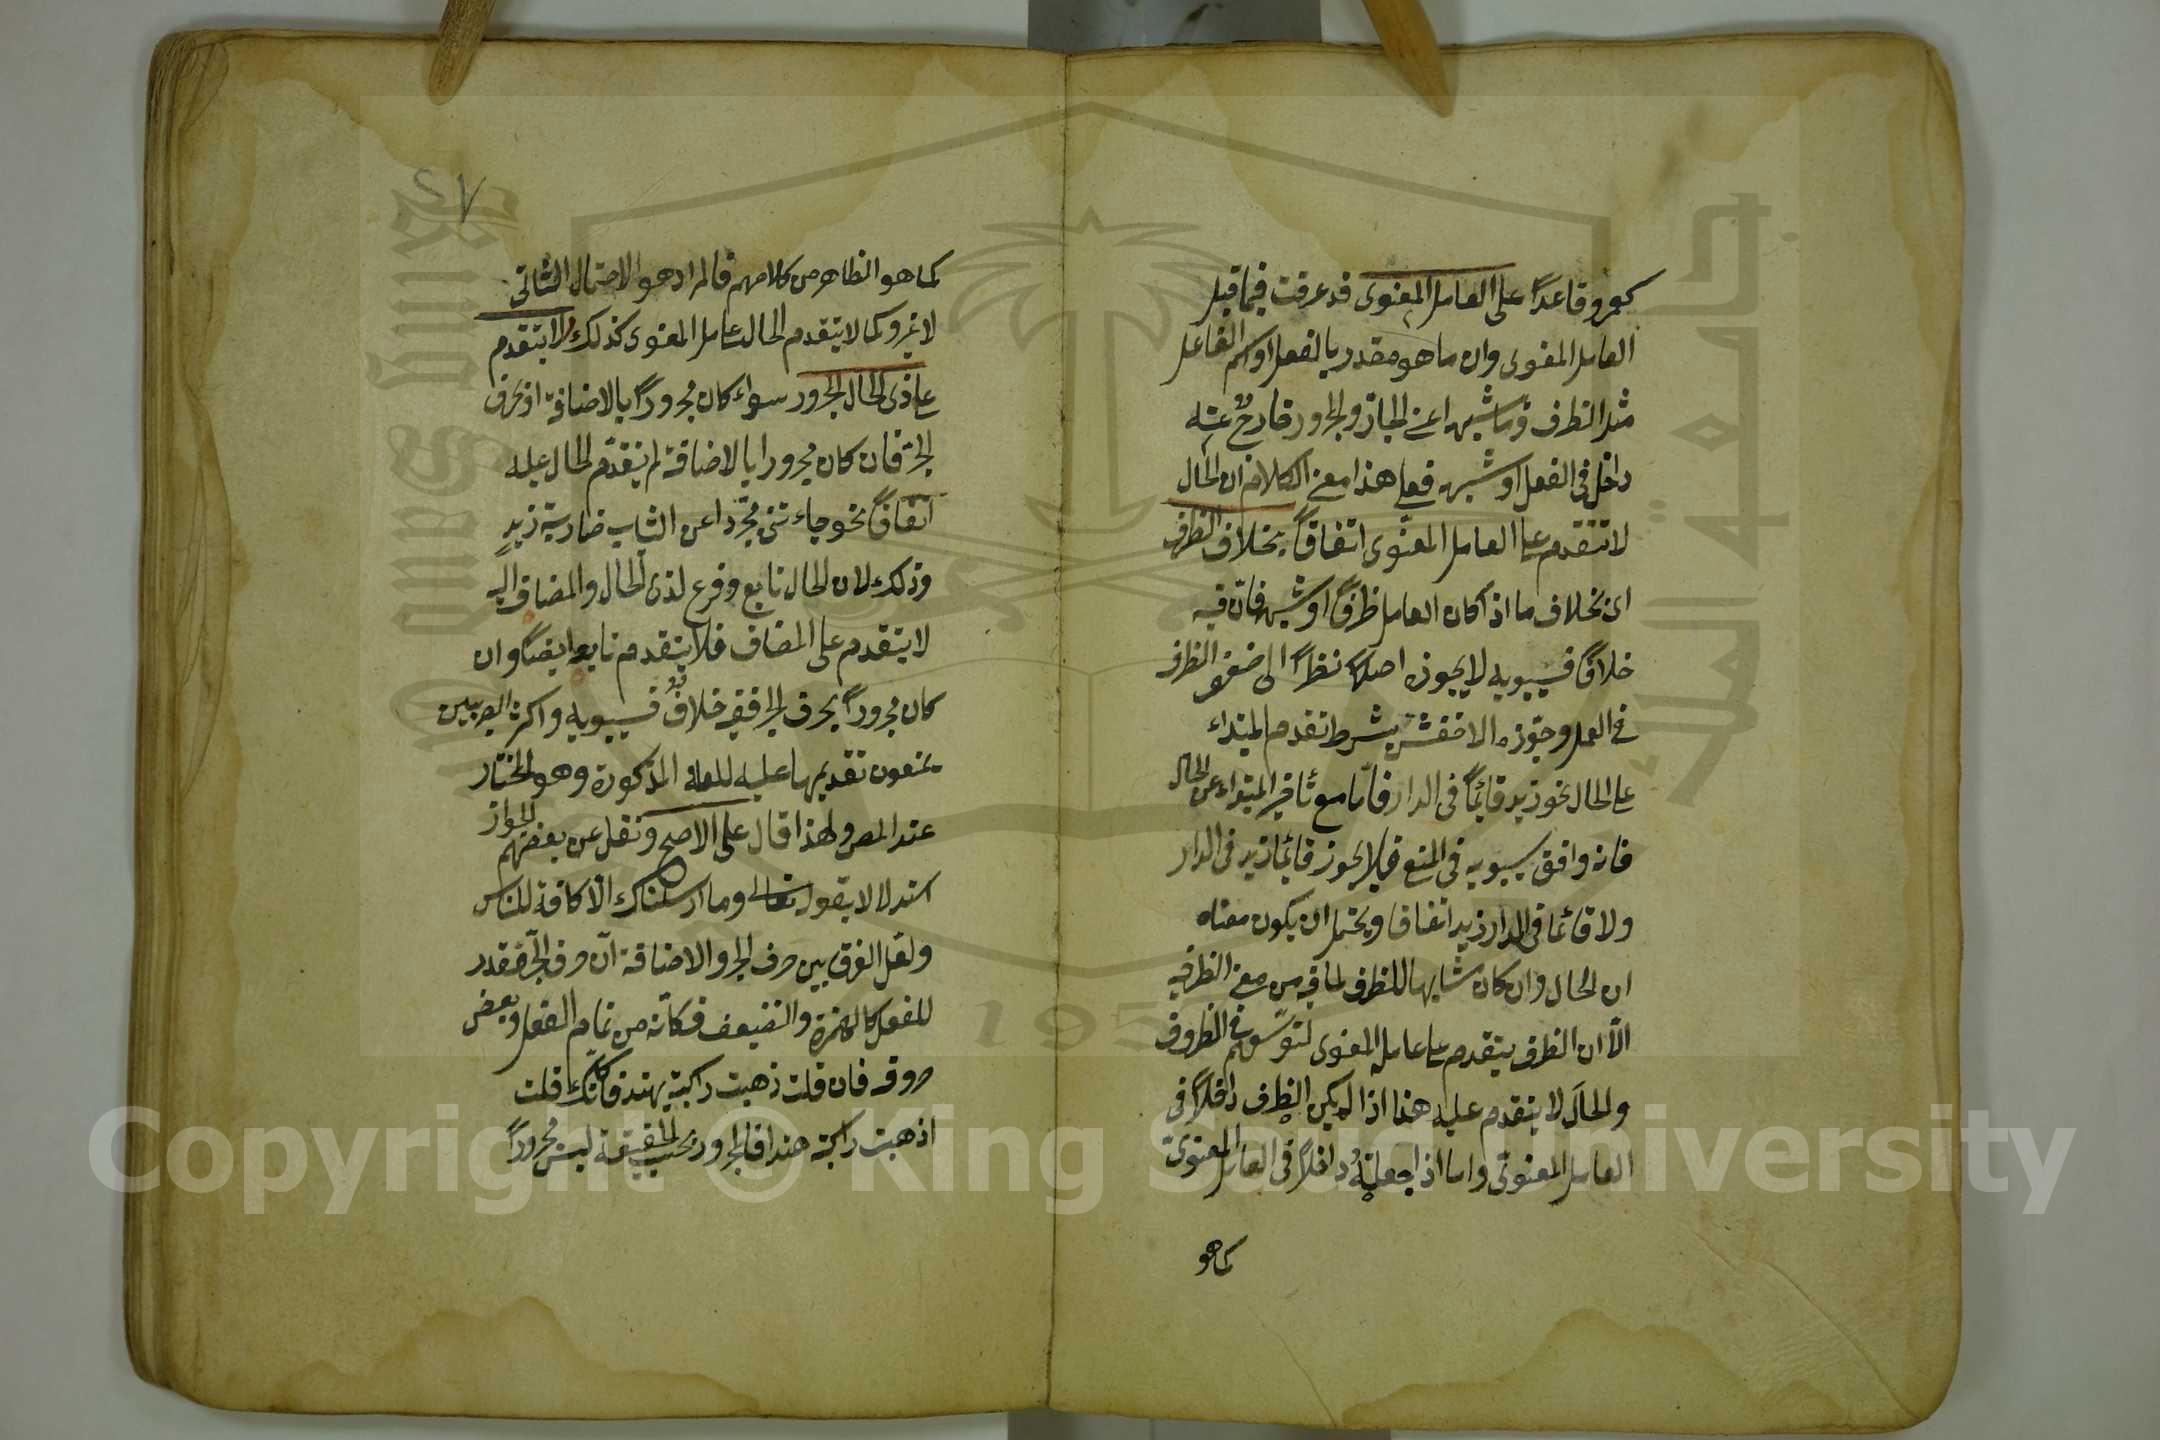 كعمرو قاعدًا على العامل المعنوى قد عرفت فيما قبل
العامل المعنوى وان ما هو مقدر بالفعل او اسم الفاعل
مثل الظرف وما شبهه اعنى الجار والمجرور خارج عنه
داخل فى الفعل او شبهه فعلى هذا معنى الكلام ان الحال
لا تتقدم على العامل المعنوى اتفاقًا بخلاف الظرف
اى بخلاف ما اذا كان العامل ظرفًا او شبهه فان فيه
خلافًا فسيبويه لا يجوزه اصلا نظرًا الى ضعف الظرف
فى العمل وجوّزه الاخفش بشرط تقدم المبتداء
على الحال نحو زيد قائمًا فى الدار فاما مع تاخير المبتداء عن الحال
فانه وافق سيبويه فى المنع فلا يجوز قائما زيد فى الدار
ولا قائما فى الدار زيد اتفاقا ويحتمل ان يكون معناه
ان الحال وان كان مشابها للظرف لما فيه من معنى الظرفية
الّا ان الظرف يتقدم على عامله المعنوى لتوسعهم فى الظروف
والحال لا يتقدم عليه هذا اذا لم يكن الظرف داخلًا فى
العامل المعنوى واما اذا جعلته داخلًا فى العامل المعنوى
كما هو
٢٧
كما هو الظاهر من كلامهم فالمراد هو الاحتمال الثانى
لا غير وكما لا يتقدم الحال على عامل المعنوى كذلك لا يتقدم
على ذى الحال المجرور سواء كان مجرورًا بالاضافة او بحرف
الجر فان كان مجرورا بالاضافة لم يتقدم الحال عليه
اتفاقًا نحو جاءتنى مجردا عن الثياب ضاربة زيدٍ
وذلك لان الحال تابع وفرع لذى الحال والمضاف اليه
لا يتقدم على المضاف فلا يتقدم تابعه ايضًا وان
كان مجرورًا بحرف الجر ففيه خلاف فسيبويه واكثر البصريين
يمنعون تقديمها عليه للعلة المذكورة وهو المختار
عند المص ولهذا قال على الاصح ونقل عن بعضهم الجواز
استدلالا بقوله تعالى وما ارسلناك الّا كافة للناس
ولعل الفرق بين حرف الجر والاضافة ان حرف الجر معد
للفعل كالهمزة والتضعيف فكانه من تمام الفعل وبعض
حروفه فان قلت ذهبت راكبة بهند فكانك قلت
اذهبت راكبة هندا فالمجرور بحسب الحقيقة ليس مجرورًا
Copyright © King Saud University
جامعة الملك سعود
King Saud University
1957